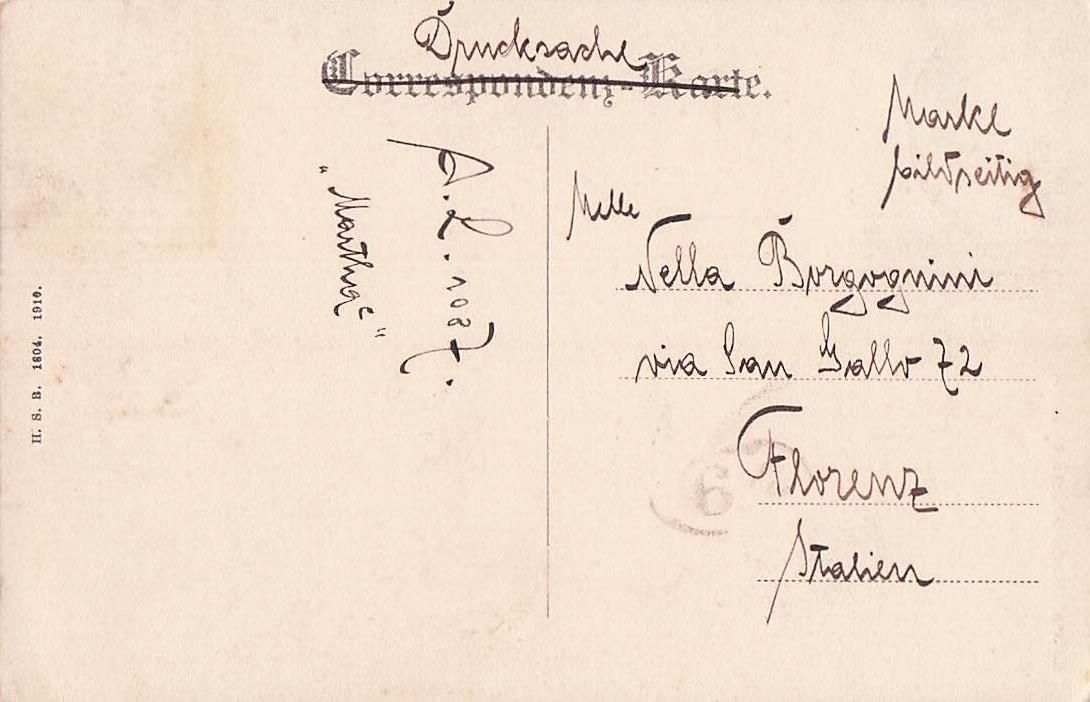 Drucksache
Correspondenz-Karte.
Marke
bildseitig
Mlle
Nella Borgognini
via San Gallo 72
Florenz
Italien
A. L. 1087.
„Martha“
H. S. B. 1804. 1910.
6